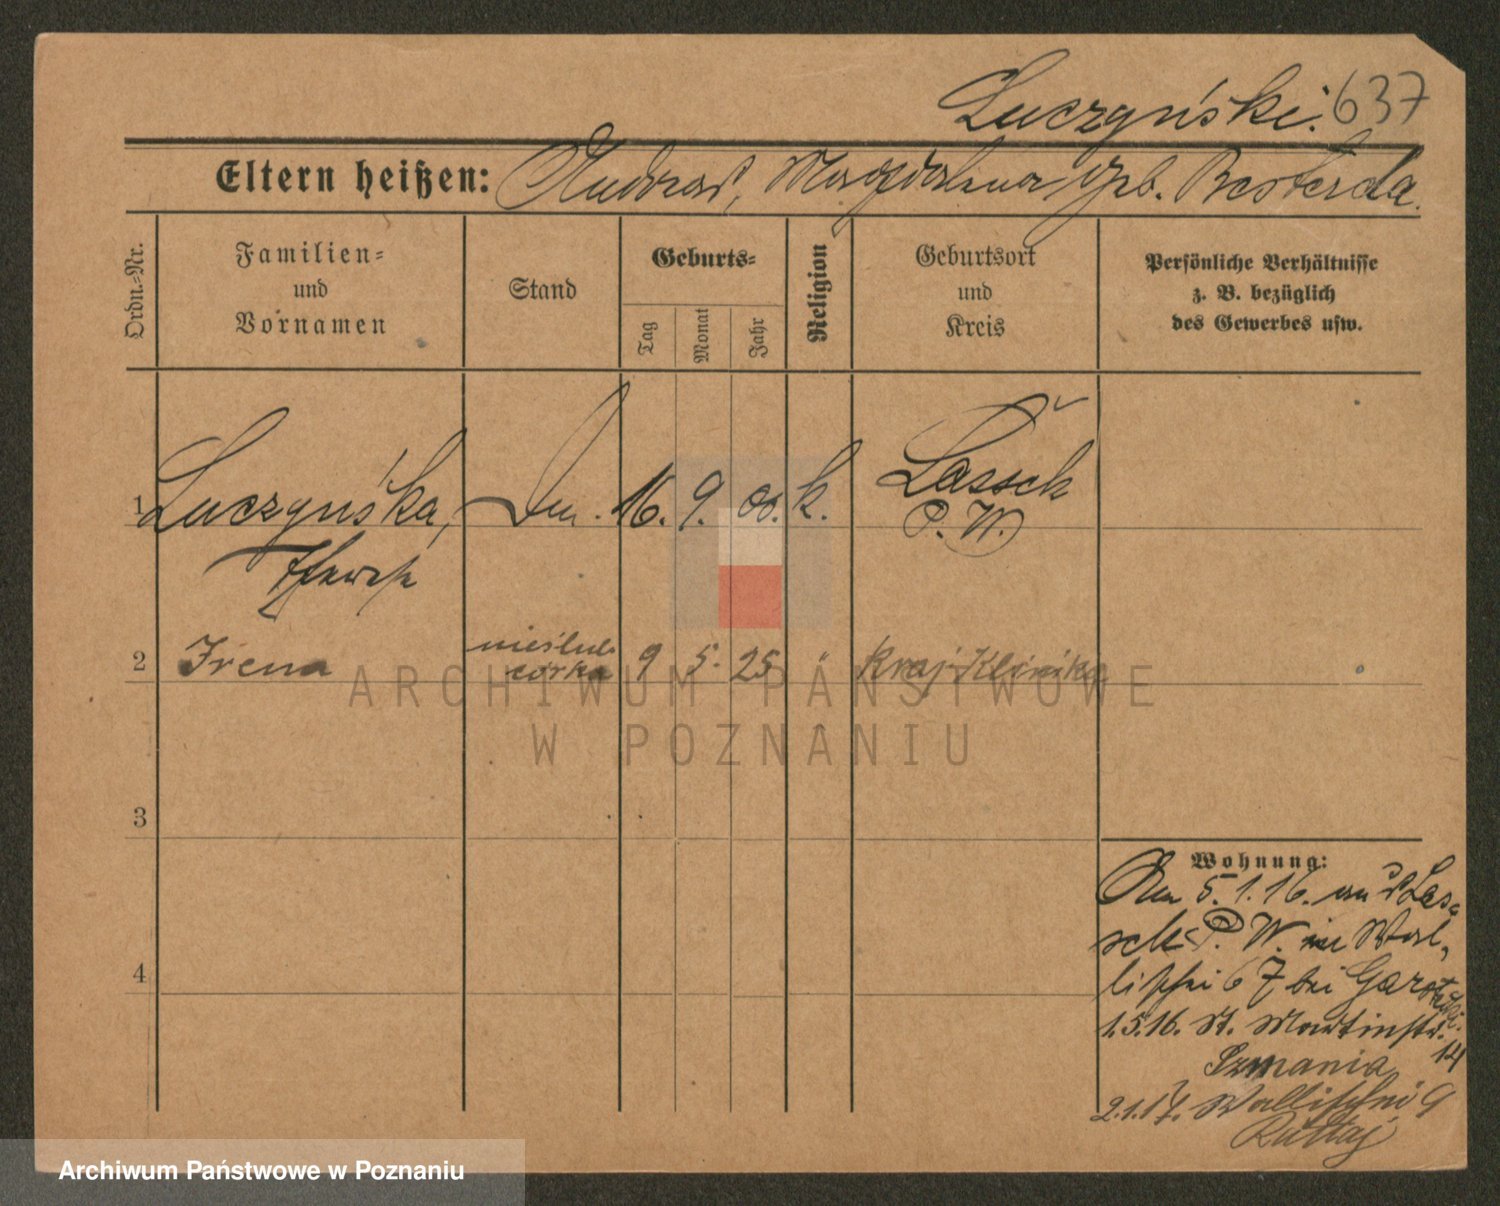 Luczyński. 637
Eltern heißen: Andreas, Magdalena geb. Besterda.
Ordn.-Nr.
Familien-
und
Vornamen
Stand
Geburts-
Tag
Monat
Jahr
Religion
Geburtsort
und
Kreis
Persönliche Verhältnisse
z. B. bezüglich
des Gewerbes usw.
1 Luczyńska, 16. 9. 00. k. Lassek
P. W.
2 Irena nieślub. córka 9 5. 25 " kraj. Klinika
3
4
Wohnung:
5. 1. 16. Las-
sek P. W. Wal-
lischei 67 bei
1.5.16. St. Martinstr. 14
Szmania
2.1.17. Wallischei 9
Rattaj
ARCHIWUM PAŃSTWOWE
W POZNANIU
Archiwum Państwowe w Poznaniu